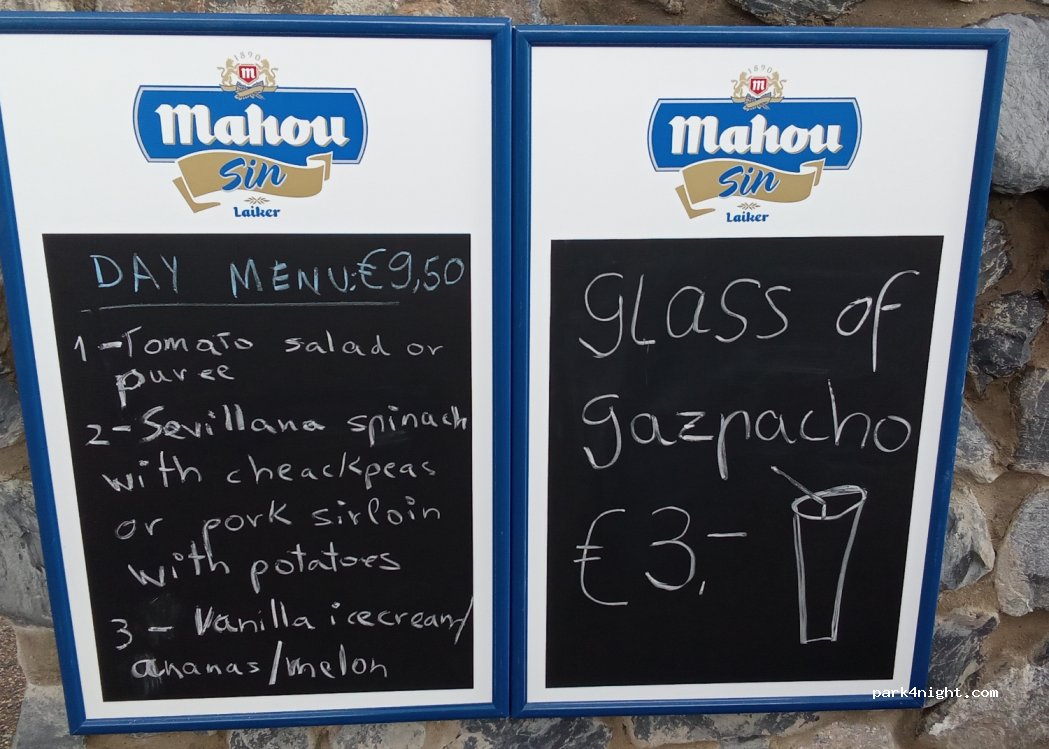 1890
m
Mahou
Sin
Laiker
DAY MENU:€9,50
1-Tomato salad or
puree
2-Sevillana spinach
with cheackpeas
or pork sirloin
with potatoes
3-Vanilla icecream/
ananas/melon
1890
m
Mahou
Sin
Laiker
Glass of
gazpacho
€3,-
park4night.com